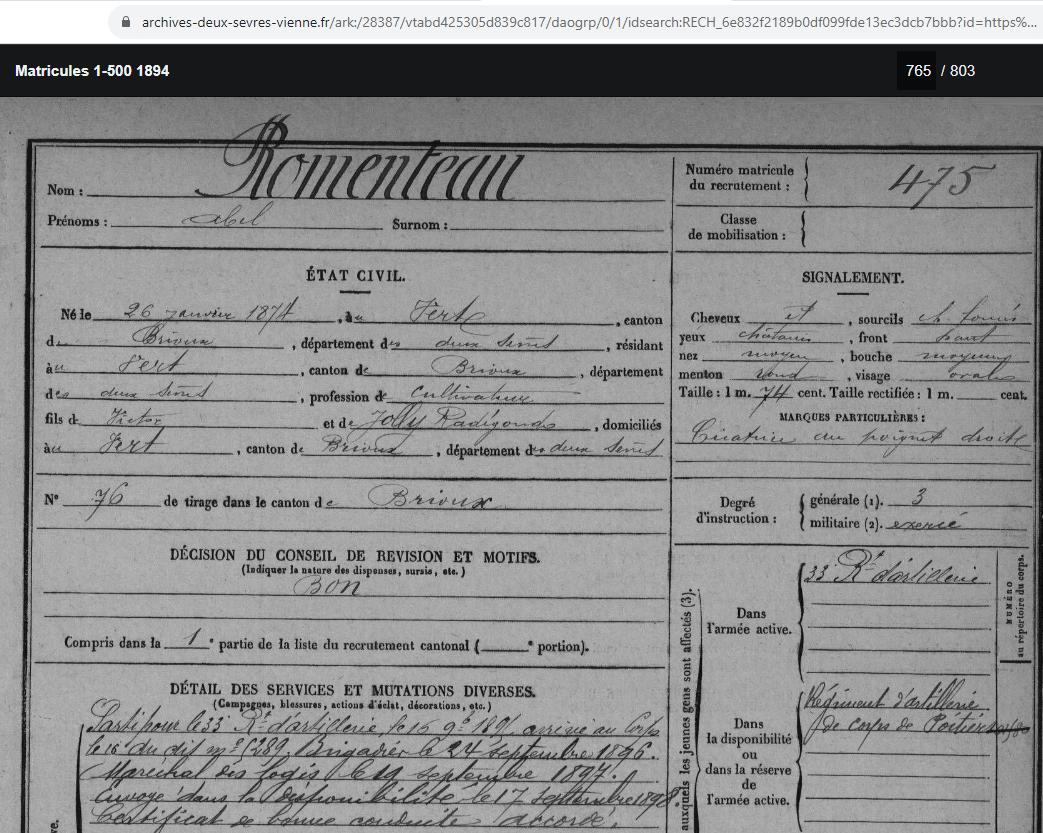 archives-deux-sevres-vienne.fr/ark:/28387/vtabd425305d839c817/daogrp/0/1/idsearch:RECH_6e832f2189b0df099fde13ec3dcb7bbb?id=https%...
Matricules 1-500 1894
765 / 803
Nom : Romenteau
Prénoms : abel Surnom :
Numéro matricule du recrutement : 475
Classe de mobilisation :
ÉTAT CIVIL.
Né le 26 janvier 1874, à Vert, canton
de Brioux, département des deux Sèvres, résidant
à Vert, canton de Brioux, département
des deux Sèvres, profession de Cultivateur
fils de Victor et de Jolly Radégonde, domiciliés
à Vert, canton de Brioux, département des deux Sèvres
N° 76 de tirage dans le canton de Brioux
DÉCISION DU CONSEIL DE REVISION ET MOTIFS.
(Indiquer la nature des dispenses, sursis, etc.)
Bon
Compris dans la 1e partie de la liste du recrutement cantonal (e portion).
DÉTAIL DES SERVICES ET MUTATIONS DIVERSES.
(Campagnes, blessures, actions d'éclat, décorations, etc.)
Parti pour le 33 Rt d'artillerie, le arrivé au Corps
le 16 du dit, Brigadier le 24 septembre 1896.
Maréchal des logis le 19 septembre 1897.
Envoyé dans la disponibilité le 17 septembre 1898.
Certificat de bonne conduite accordé.
SIGNALEMENT.
Cheveux et, sourcils ch. foncés
yeux châtains, front haut
nez moyen, bouche moyenne
menton rond, visage ovale
Taille : 1 m. 74 cent. Taille rectifiée : 1 m. cent.
MARQUES PARTICULIÈRES :
Cicatrice au poignet droite
Degré d'instruction :
générale (1). 3
militaire (2). exercé
auxquels les jeunes gens sont affectés (3).
Dans l'armée active.
33 Rt d'artillerie
NUMÉRO au répertoire du corps.
Dans la disponibilité ou dans la réserve de l'armée active.
Régiment d'artillerie
de corps de Poitiers